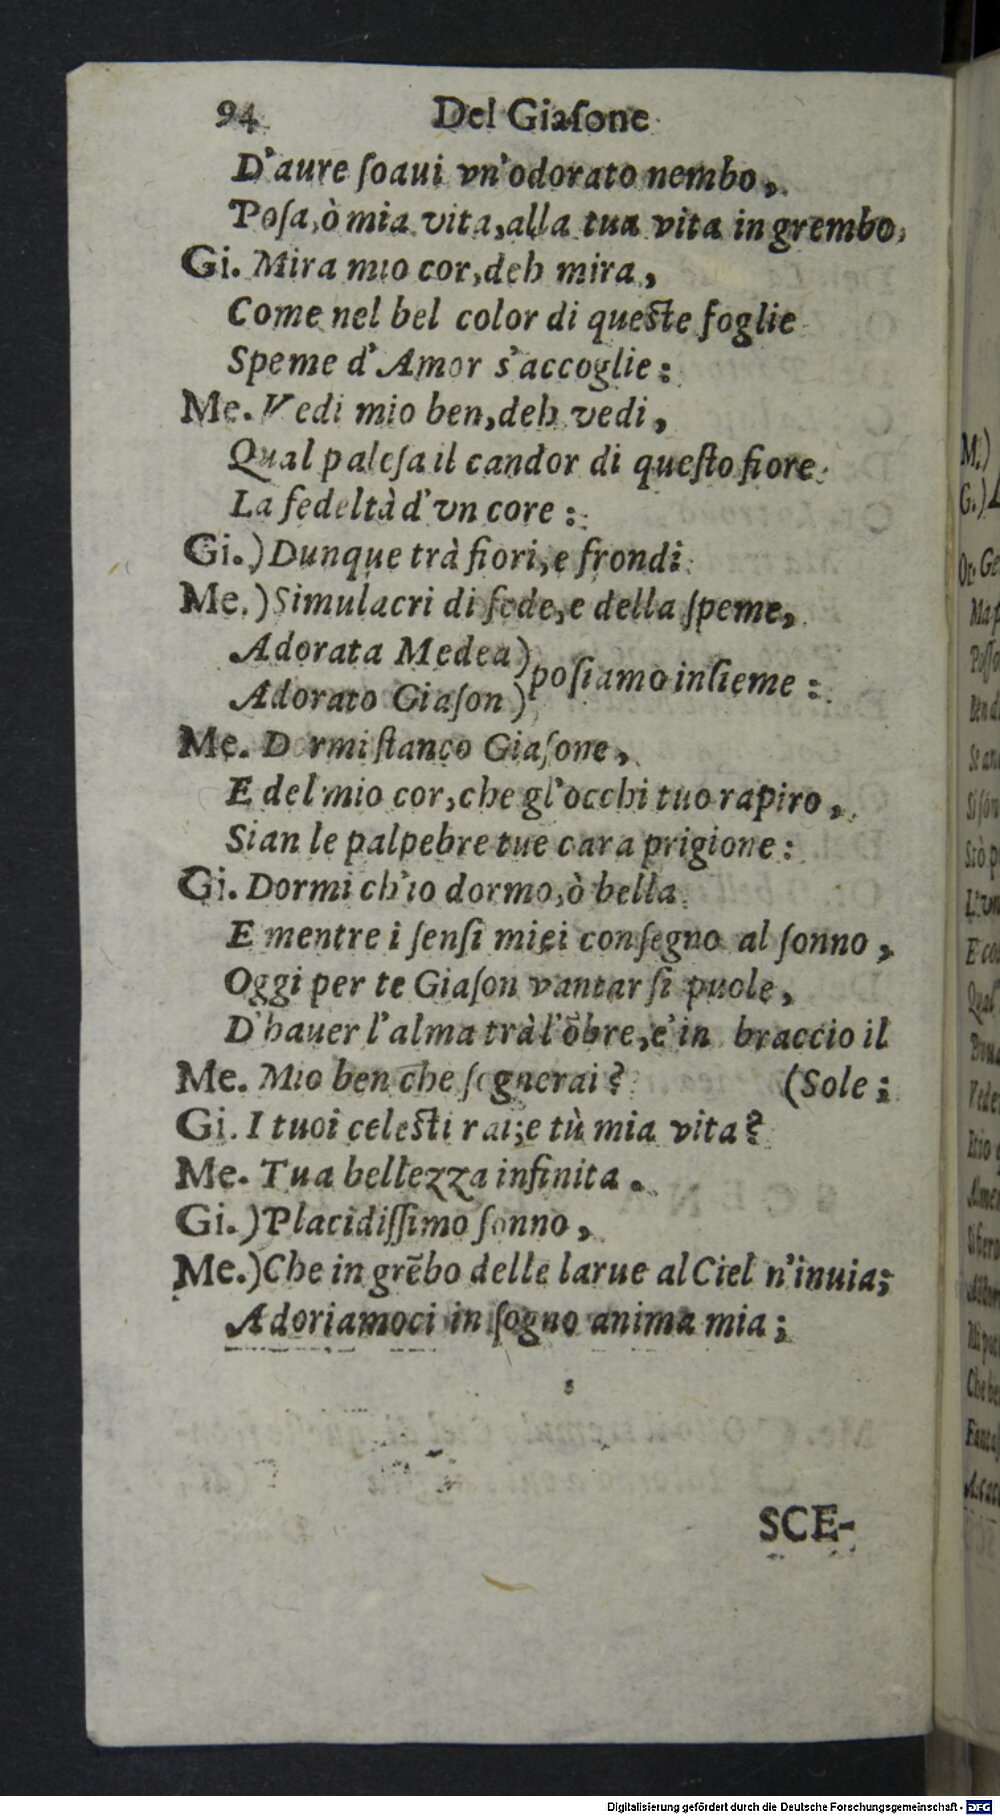 94 Del Giaſone
D'aure ſoaui vn'odorato nembo,
Poſa, ò mia vita, alla tua vita in grembo,
Gi. Mira mio cor, deh mira,
Come nel bel color di queſte foglie
Speme d'Amor s'accoglie:
Me. Vedi mio ben, deh vedi,
Qual paleſa il candor di queſto fiore
La fedeltà d'vn core:
Gi.) Dunque trà fiori, e frondi
Me.) Simulacri di fede, e della ſpeme,
Adorata Medea)
Adorato Giaſon) poſiamo inſieme:
Me. Dormi ſtanco Giaſone,
E del mio cor, che gl'occhi tuo rapiro,
Sian le palpebre tue cara prigione:
Gi. Dormi ch'io dormo, ò bella
E mentre i ſenſi miei conſegno al ſonno,
Oggi per te Giaſon vantar ſi puole,
D'hauer l'alma trà l'õbre, e'in braccio il
Me. Mio ben che ſognerai? (Sole;
Gi. I tuoi celeſti rai; e tù mia vita?
Me. Tua bellezza infinita.
Gi.) Placidiſſimo ſonno,
Me.) Che in grẽbo delle larue al Ciel n'inuia;
Adoriamoci in ſogno anima mia;
SCE-
M.)
G.)
Or. Ge
Digitalisierung gefördert durch die Deutsche Forschungsgemeinschaft - DFG